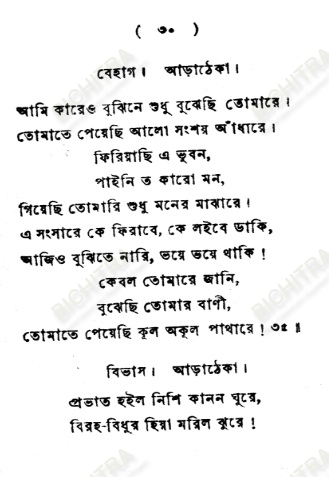 ( ৩০ )
বেহাগ। আড়াঠেকা।
আমি কারেও বুঝিনে শুধু বুঝেছি তোমারে।
তোমাতে পেয়েছি আলো সংশয় আঁধারে।
ফিরিয়াছি এ ভুবন,
পাইনি ত কারো মন,
গিয়েছি তোমারি শুধু মনের মাঝারে।
এ সংসারে কে ফিরাবে, কে লইবে ডাকি,
আজিও বুঝিতে নারি, ভয়ে ভয়ে থাকি!
কেবল তোমারে জানি,
বুঝেছি তোমার বাণী,
তোমাতে পেয়েছি কূল অকূল পাথারে! ৩৫॥
বিভাস। আড়াঠেকা।
প্রভাত হইল নিশি কানন ঘুরে,
বিরহ-বিধুর হিয়া মরিল ঝুরে!
BICHITRA
BICHITRA
BICHITRA
BICHITRA